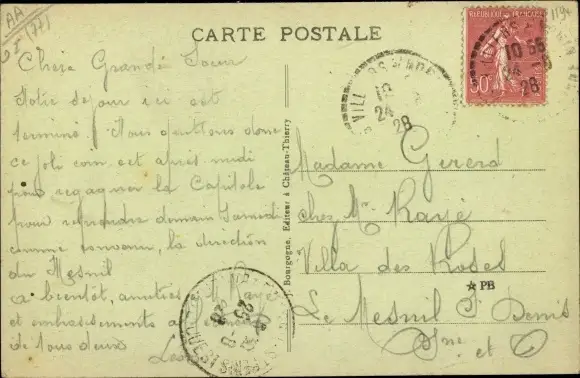 AA
CARTE POSTALE
REPUBLIQUE FRANÇAISE
50
10
24
28
24
28
Chère Grande Soeur
Notre séjour ici est
terminé. Nous quittons donc
ce joli coin, cet après midi
pour regagner la Capitale
pour reprendre demain Samedi
comme convenu, la direction
du Mesnil
à bientôt, amitiés
et embrassements à
de tous deux
Bourgogne, Editeur à Château-Thierry
Madame Gérard
chez Mr Rayé
Villa des Roses
PB
Le Mesnil St Denis
Sne et O
25
28